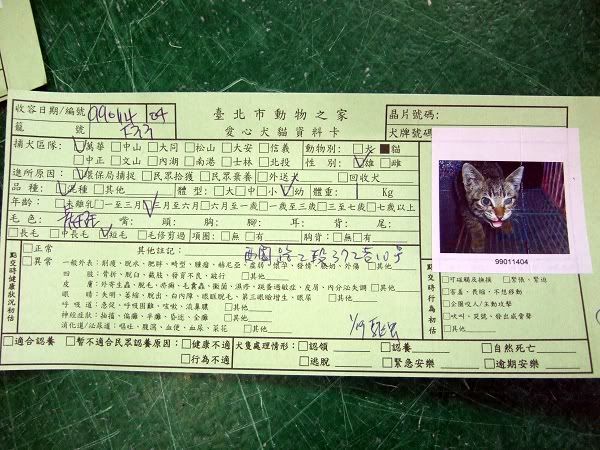 收容日期/編號 990114 04 臺北市動物之家 晶片號碼:
籠 號 愛心犬貓資料卡 犬牌號碼
捕犬區隊: ☑萬華 □中山 □大同 □松山 □大安 □信義 動物別: □犬 ■貓
□中正 □文山 □內湖 □南港 □士林 □北投 性 別: ☑雄 □雌
進所原因: ☑環保局捕捉 □民眾拾獲 □民眾棄養 □外送犬 □回收犬
品 種: ☑土種 □其他 體 型: □大□中□小☑幼 體重: 1 Kg
年齡: □未離乳 □一至三月 ☑三月至六月 □六月至一歲 □一歲至三歲 □三至七歲 □七歲以上
毛色: 嘴: 頭: 胸: 腳: 耳: 背: 尾:
□長毛 □中長毛 ☑短毛 □毛修剪過 項圈: □無 □有 胸背: □無 □有
99011404
點交時健康狀況初估
□正常
□異常
其他註記: 西園路2段372巷10号
一般外表: 削瘦、脫水、肥胖、畸型、腫瘤、
四 肢: 骨折、脫臼、截肢、發育不良、跛行 □其他
皮 膚: 外寄生蟲、脫毛、疥癬、毛囊蟲、黴菌、濕疹、跳蚤過敏症、皮屑、內分泌失調 □其他
眼 睛: 失明、萎縮、脫出、白內障、眼瞼脫毛、第三眼瞼增生、眼屎 □其他
呼吸道: 急促、呼吸困難、咳嗽、流鼻膿 □其他
神經症狀: 抽搐、偏癱、半癱、昏迷、全癱 □其他
消化道/泌尿道: 嘔吐、腹瀉、血便、血尿、菜花 □其他
1/19
點交時行為初估
□可碰觸及撫摸 □緊張、緊迫
□害羞、畏縮、不想移動
□企圖咬人/主動攻擊
□吠叫、哭號、發出威脅聲
□其他
□適合認養 □暫不適合民眾認養原因: □健康不適 犬隻處理情形: □認領 □認養 □自然死亡
□行為不適 □逃脫 □緊急安樂 □逾期安樂